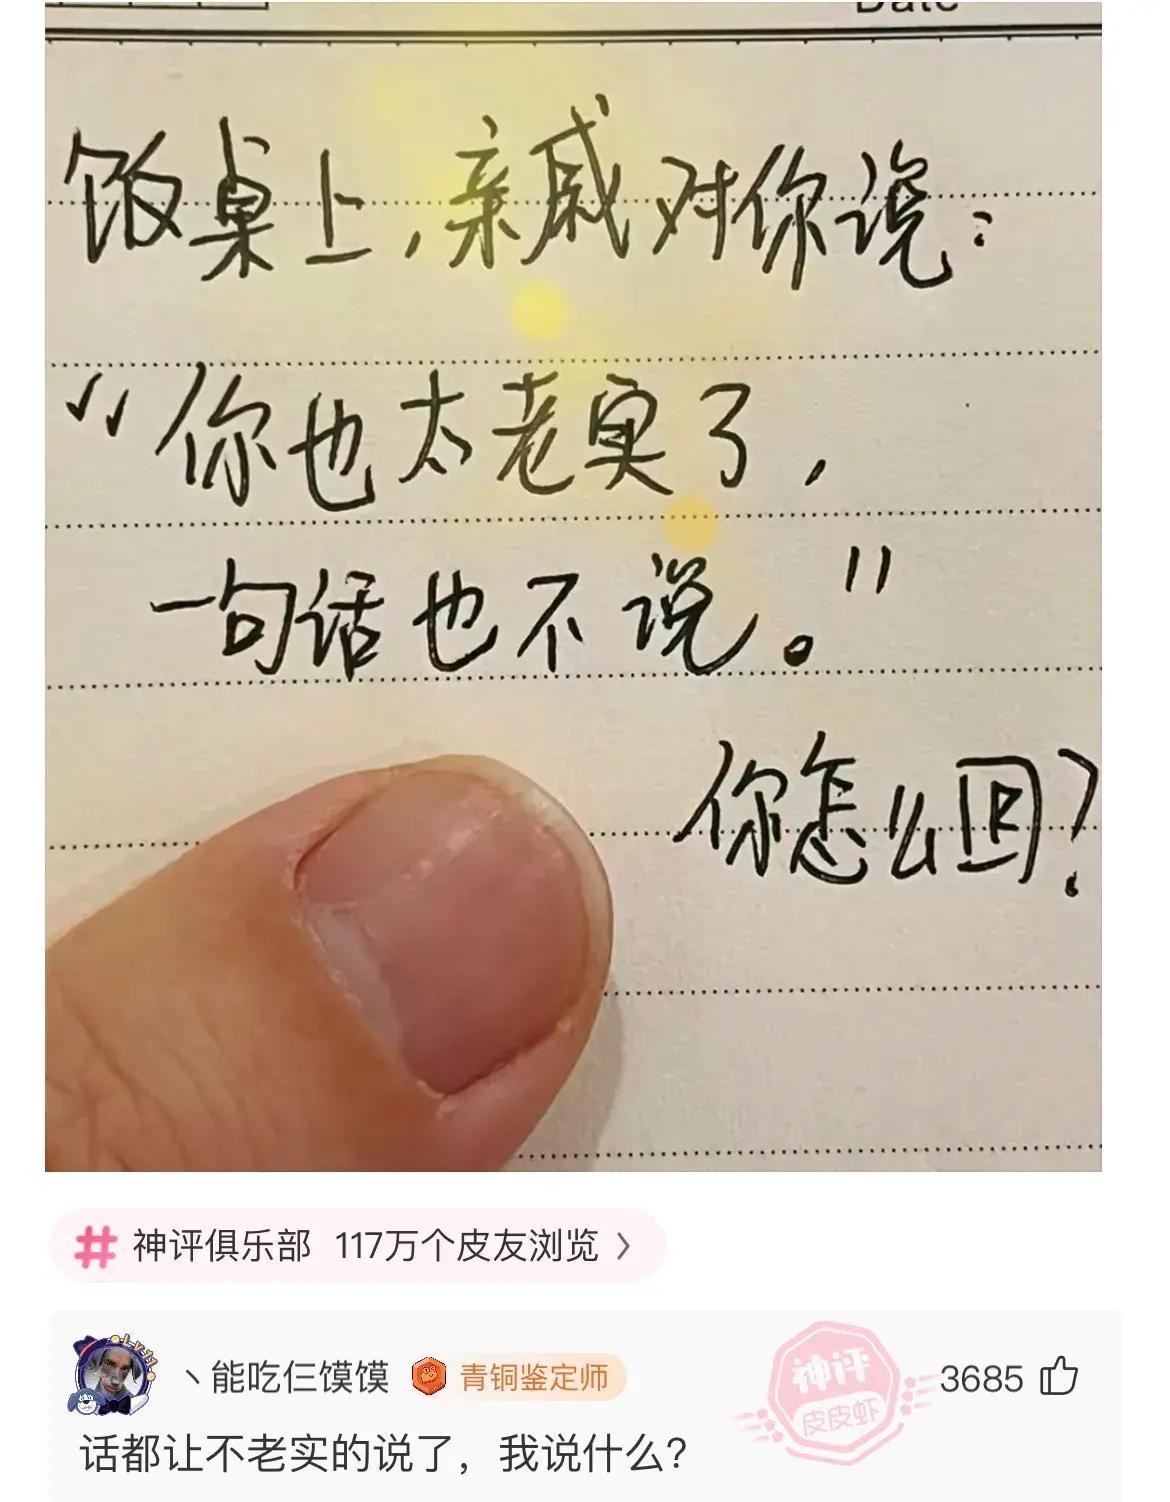 Date
饭桌上，亲戚对你说：
“你也太老实了，
一句话也不说。”
你怎么回？
神评俱乐部 117万个皮友浏览
丶能吃仨馍馍 青铜鉴定师
神评
皮皮虾
3685
话都让不老实的说了，我说什么？